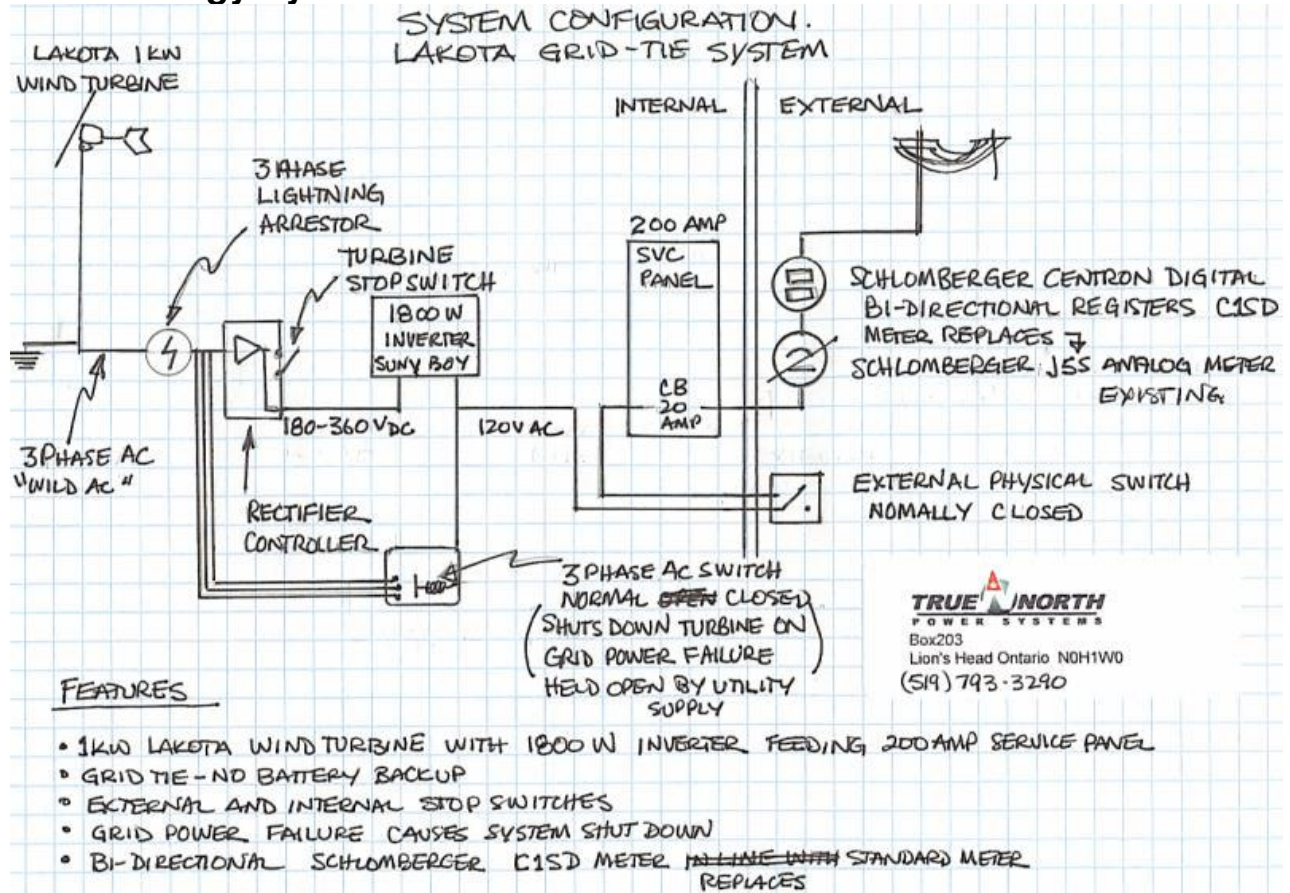 SYSTEM CONFIGURATION.
LAKOTA GRID-TIE SYSTEM
LAKOTA 1KW
WIND TURBINE
INTERNAL
EXTERNAL
3 PHASE
LIGHTNING
ARRESTOR
TURBINE
STOP SWITCH
1800 W
INVERTER
SUNY BOY
200 AMP
SVC
PANEL
CB
20
AMP
SCHLOMBERGER CENTRON DIGITAL
BI-DIRECTIONAL REGISTERS C1SD
METER REPLACES
SCHLOMBERGER J5S ANALOG METER
EXISTING
2
180-360 VDC
120V AC
3 PHASE AC
"WILD AC"
RECTIFIER
CONTROLLER
EXTERNAL PHYSICAL SWITCH
NOMALLY CLOSED
3 PHASE AC SWITCH
NORMAL OPEN CLOSED
(SHUTS DOWN TURBINE ON
GRID POWER FAILURE)
HELD OPEN BY UTILITY
SUPPLY
TRUE NORTH
POWER SYSTEMS
Box203
Lion's Head Ontario N0H1W0
(519) 793-3290
FEATURES
• 1KW LAKOTA WIND TURBINE WITH 1800 W INVERTER FEEDING 200 AMP SERVICE PANEL
• GRID TIE - NO BATTERY BACKUP
• EXTERNAL AND INTERNAL STOP SWITCHES
• GRID POWER FAILURE CAUSES SYSTEM SHUT DOWN
• BI-DIRECTIONAL SCHLOMBERGER C1SD METER IN LINE WITH STANDARD METER
REPLACES